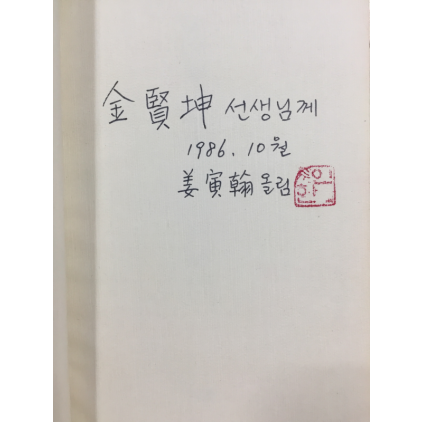 金賢坤 선생님께
1986. 10월
姜寅翰 올림